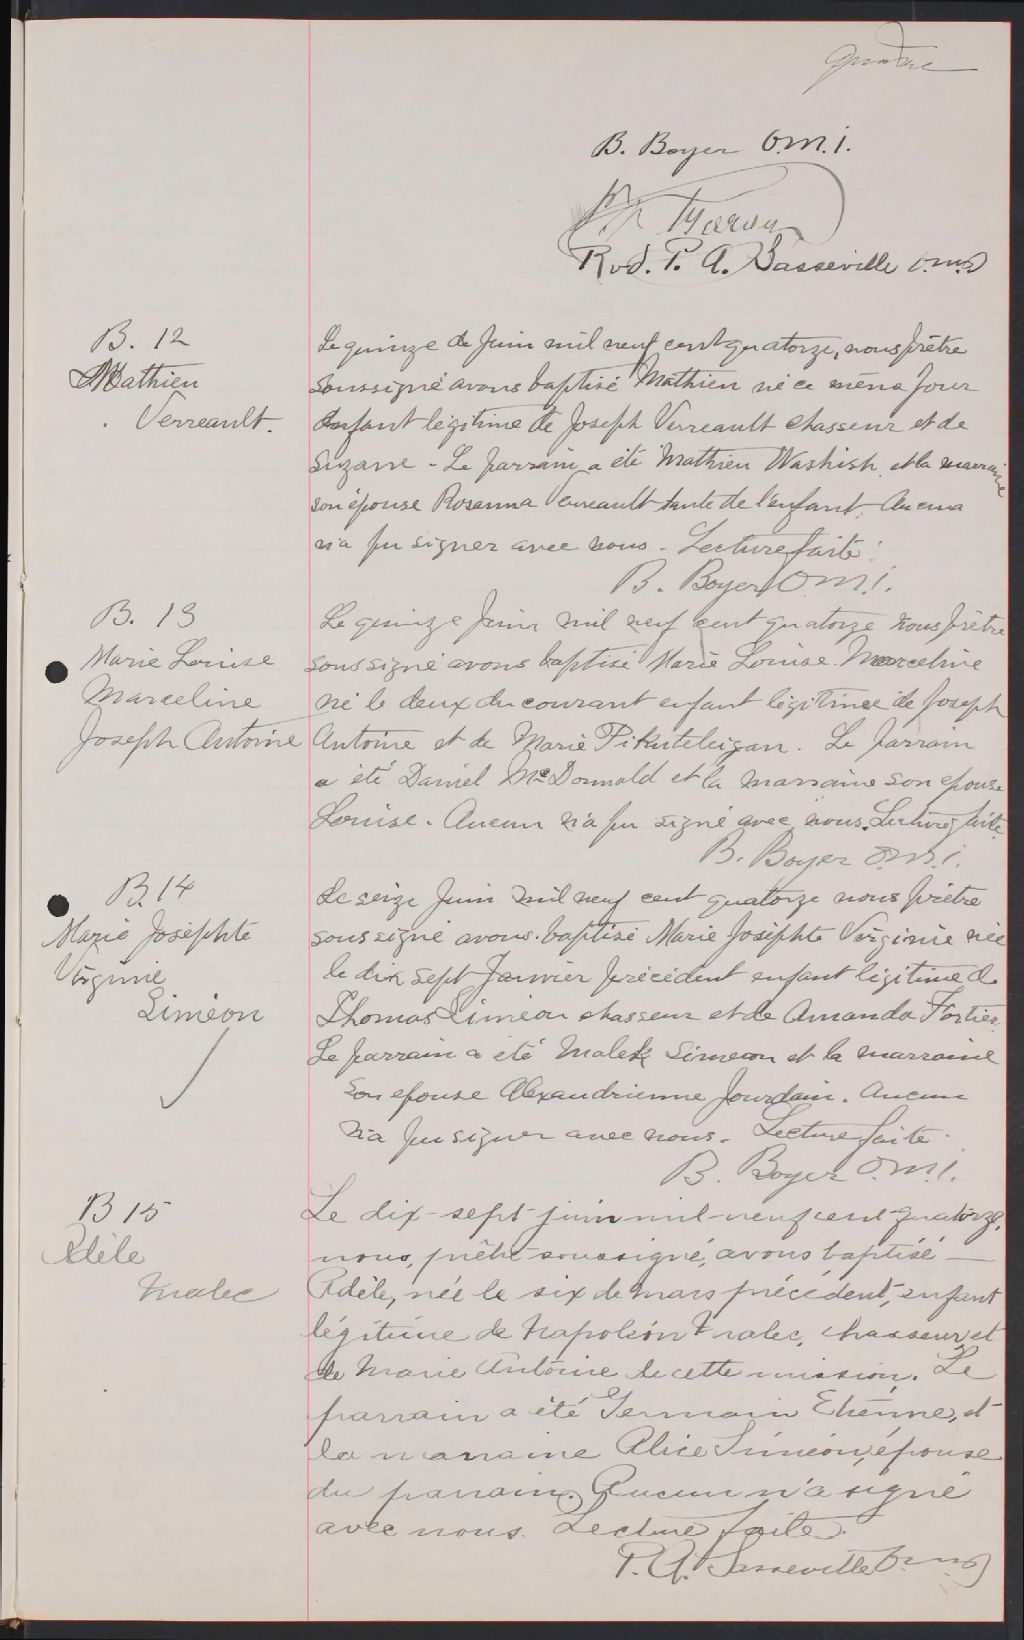 quatre
B. Boyer O.M.I.
Rvd. P. A. Sasseville o.m.i
B. 12
Mathieu
Verreault.
Le quinze de Juin mil neuf cent quatorze, nous prêtre
soussigné avons baptisé Mathieu né ce même jour
Enfant légitime de Joseph Verreault chasseur et de
Suzanne - Le parrain a été Mathieu Washish et la marraine
son épouse Rosanna Verreault tante de l'enfant. Aucun
n'a pu signer avec nous - Lecture faite.
B. Boyer O.M.I.
B. 13
Marie Louise
Marceline
Joseph Antoine
Le quinze Juin mil neuf cent quatorze nous prêtre
soussigné avons baptisé Marie Louise Marceline
né le deux du courant enfant légitimee de Joseph
Antoine et de Marie Pikuteleigan. Le parrain
a été Daniel McDonnald et la marraine son epouse
Louise. Aucun n'a pu signé avec nous. Lecture faite.
B. Boyer O.M.I.
B. 14
Marie Josephte
Virginie
Siméon
Le seize Juin mil neuf cent quatorze nous prêtre
soussigné avons baptisé Marie Josephte Virginie née
le dix sept Janvier précédent enfant légitime de
Thomas Siméon chasseur et de Amanda Fortier.
Le parrain a été Malek Simeon et la marraine
son epouse Alexandrienne Jourdain. Aucun
n'a pu signer avec nous. Lecture faite.
B. Boyer O.M.I.
B 15
Adèle
Malec
Le dix-sept juin mil-neuf cent-quatorze,
nous, prêtre soussigné, avons baptisé
Adèle, née le six de mars précédent, enfant
légitime de Napoléon Malec, chasseur, et
de Marie Antoine de cette mission. Le
parrain a été Germain Etienne, et
la marraine Alice Siméon, épouse
du parrain. Aucun n'a signé
avec nous. Lecture faite.
P. A. Sasseville o.m.i